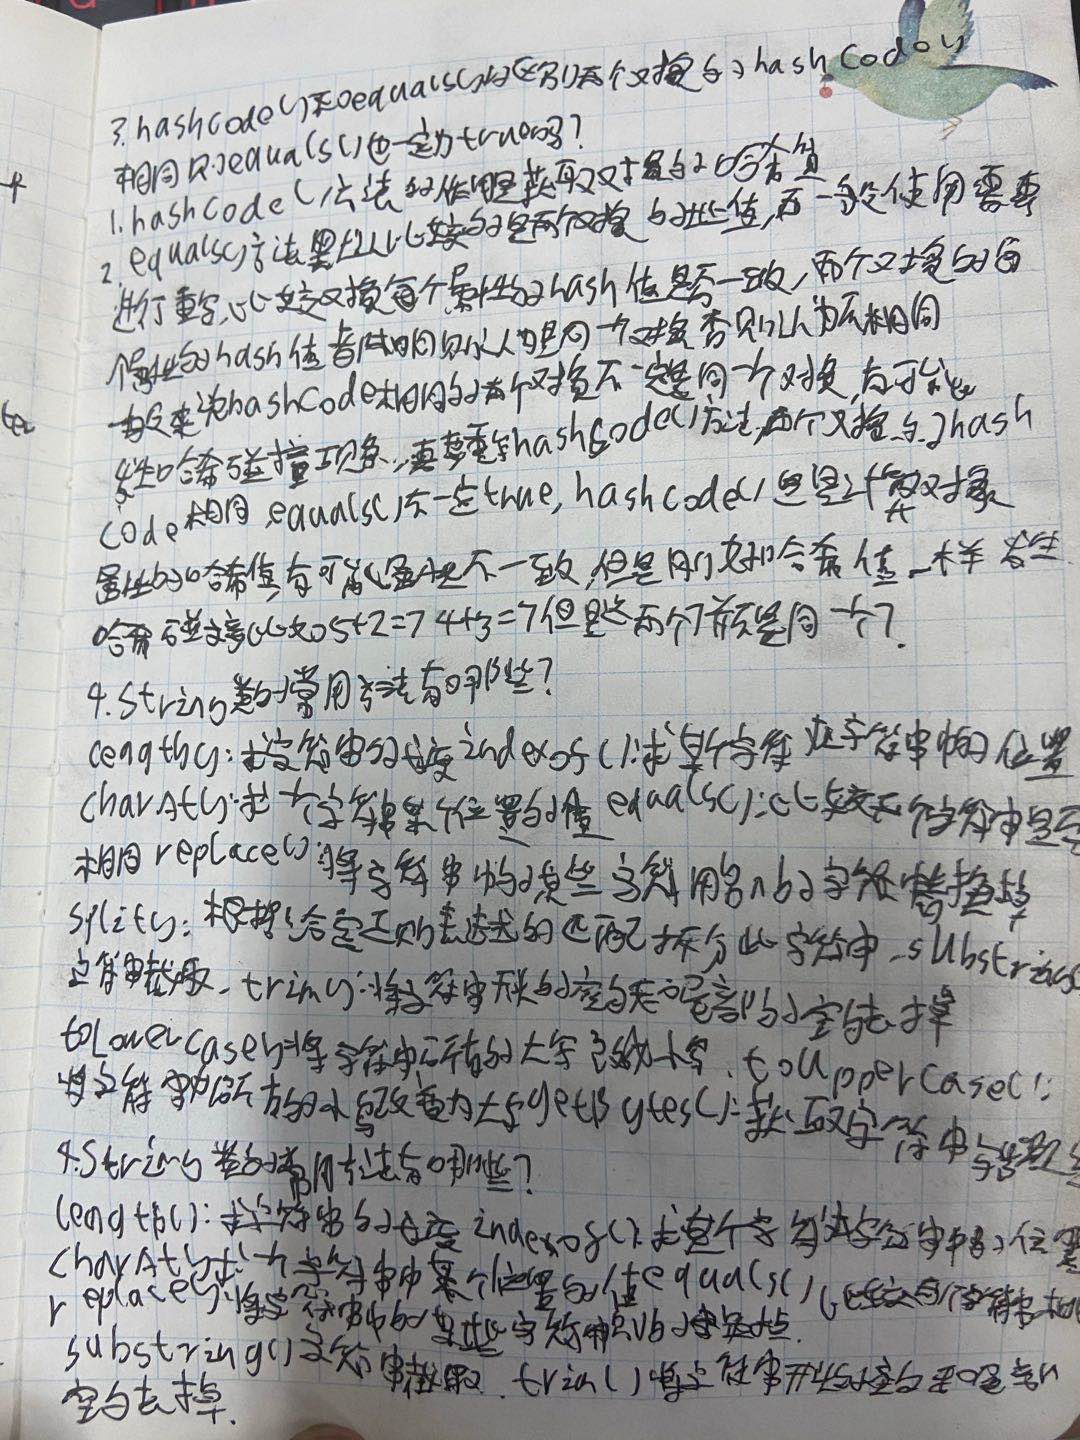 3.hashCode()和equals()的区别两个对象的hashCode()
相同 则equals()也一定为true吗?
1.hashCode()方法的作用是获取对象的哈希值
2.equals()方法默认比较的是两个对象的地址值,而一般使用需要
进行重写,比较对象每个属性的hash值是否一致,两个对象的每
个属性的hash值都相同则认为是同一个对象否则认为不相同
一般来说hashCode相同的两个对象不一定是同一个对象,有可能
发生哈希碰撞现象,真要重写hashCode()方法,两个对象的hash
Code相同,equals()不一定true,hashCode()但是计算对象
属性的哈希值,有可能属性不一致,但是刚好哈希值一样 发生
哈希碰撞比如5+2=7 4+3=7但是这两个7并不是同一个7.
4.String类的常用方法有哪些?
length():求字符串的长度 indexof():求某个字符在字符串中的位置
charAt():求一个字符串某个位置的值 equals():比较两个字符串是否
相同 replace():将字符串中的某些字符用别的字符替换掉
split():根据给定正则表达式的匹配拆分此字符串.substring()
字符串截取.trim():将字符串开头的空白和尾部的空白去掉
toLowerCase()将字符串所有的大写改为小写.toUpperCase():
将字符串所有的小写改为大写getBytes():获取字符串字节
4.String类的常用方法有哪些?
length():求字符串的长度 indexof():求某个字符在字符串中的位置
charAt()求一个字符串中某个位置的值equals()比较两个字符串相
replace()将字符串中的某些字符用别的字符
substring()字符串截取.trim()将字符串开头的空白和尾部
空白去掉.